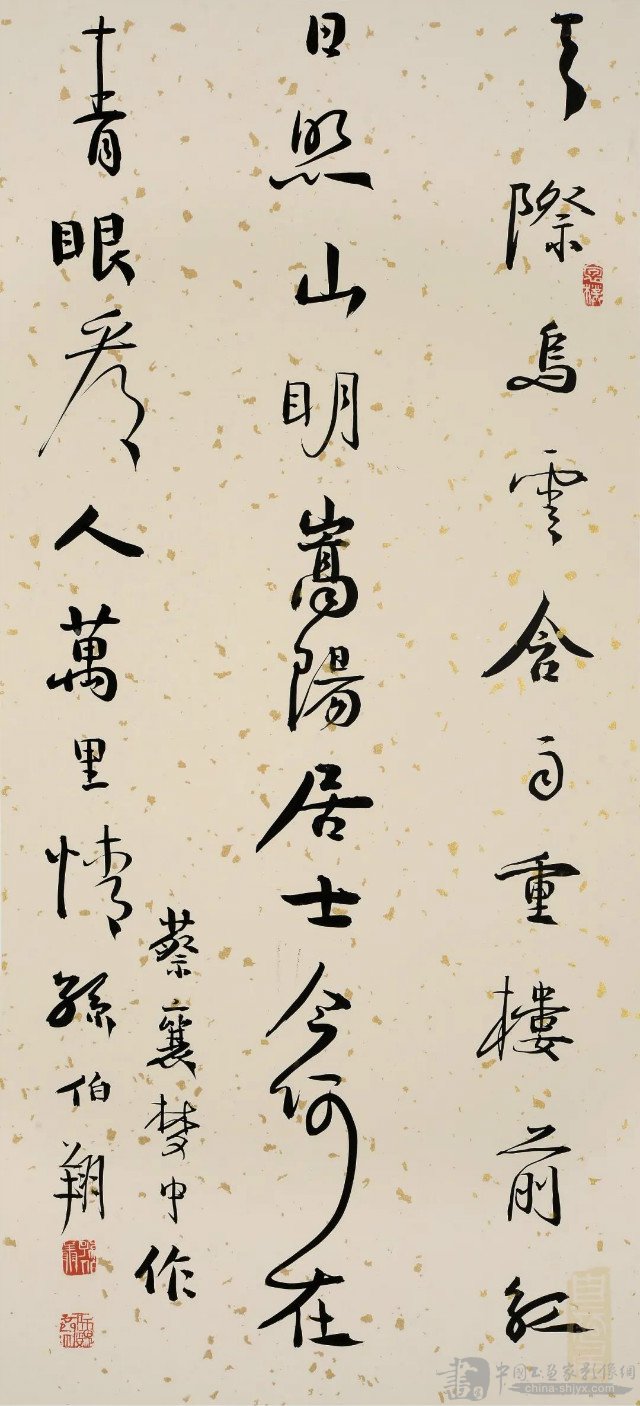 天際烏雲含雨重樓前紅
日照山明嵩陽居士今何在
青眼看人萬里情
蔡襄夢中作
孫伯翔
書
中国书画家影像網
china-shjyx.com